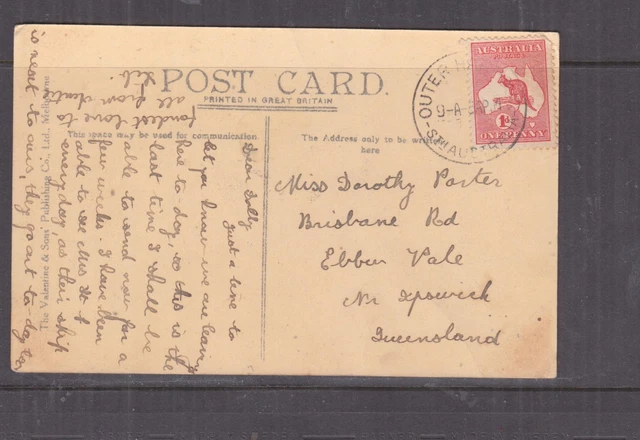 POST CARD.
PRINTED IN GREAT BRITAIN
This space may be used for communication
The Address only to be written
here
The Valentine & Sons Publishing Co., Ltd. Melbourne
AUSTRALIA
POSTAGE
1D
ONE PENNY
OUTER HA
STH AUST
Miss Dorothy Porter
Brisbane Rd
Ebbw Vale
Nr Ipswich
Queensland
Dear Dolly
Just a line to
let you know we are leaving
here to-day, so this is the
last time I shall be
able to send now for a
few weeks. I have been
able to see Mrs
every day, as their ship
is next to ours, they go out to-day too
fondest love to
all from